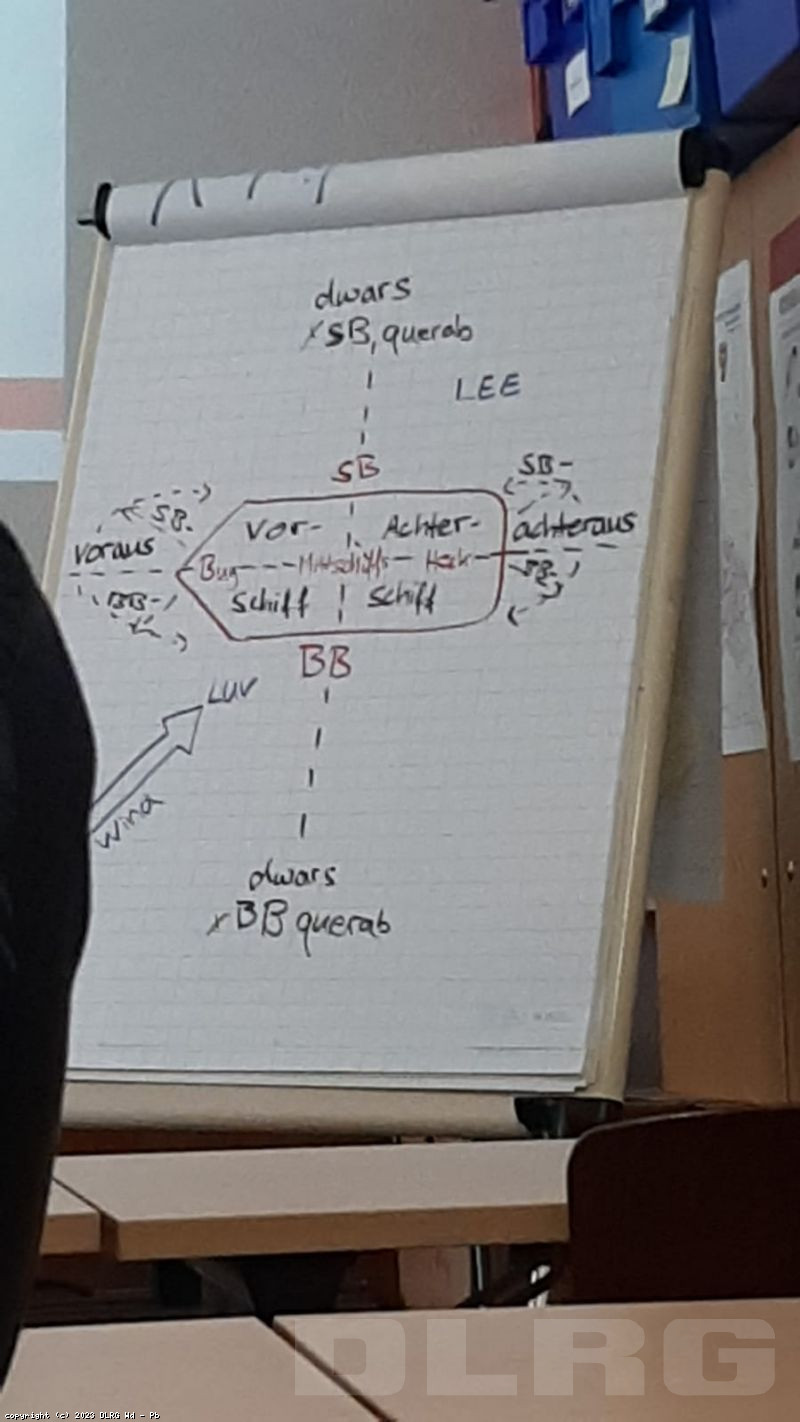 dwars
SB, querab
LEE
SB
SB-
SB-
Vor-
Achter-
achteraus
voraus
Bug
Mittschiffs
Heck
BB-
BB-
Schiff
Schiff
BB
LUV
Wind
dwars
BB querab
DLRG
copyright (c) 2023 DLRG Wd - Pb